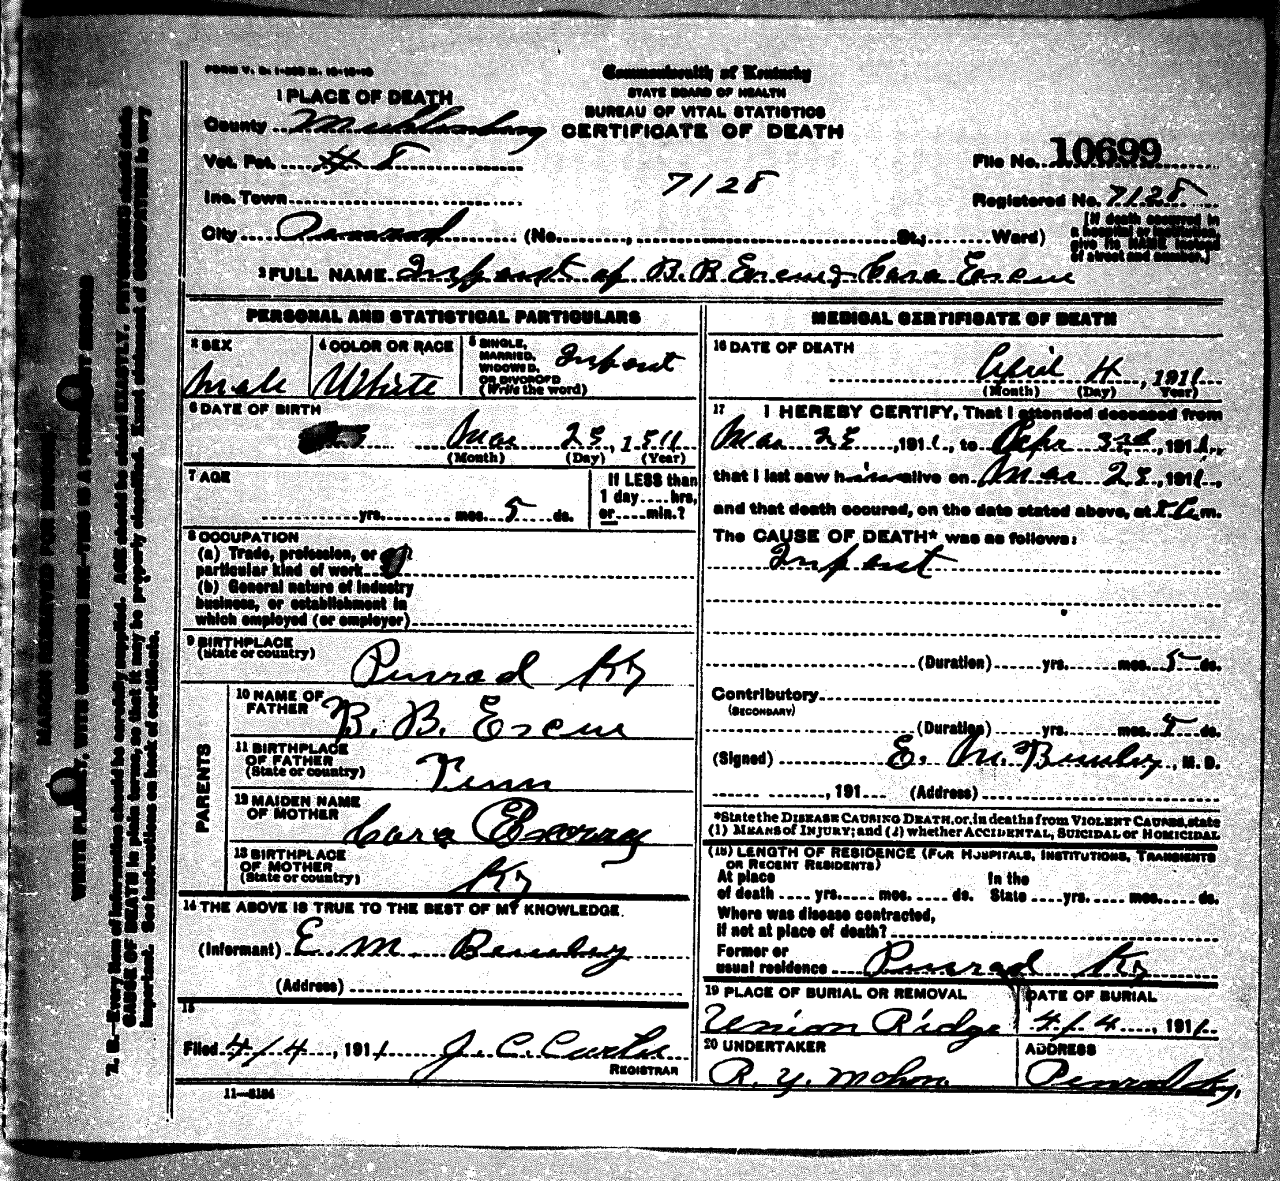 FORM V. S. 1-
Commonwealth of Kentucky
STATE BOARD OF HEALTH
BUREAU OF VITAL STATISTICS
CERTIFICATE OF DEATH
1 PLACE OF DEATH
County Muhlenberg
Vot. Pct. # 8
Inc. Town
City Penrod (No. , St.; Ward)
7128
File No. 10699
Registered No. 7128
[If death occurred in
a hospital or institution,
give its NAME instead
of street and number.]
2 FULL NAME Infant of B. B. Escue & Cara Escue
PERSONAL AND STATISTICAL PARTICULARS
3 SEX
Male
4 COLOR OR RACE
White
5 SINGLE,
MARRIED,
WIDOWED,
OR DIVORCED
(Write the word)
Infant
6 DATE OF BIRTH
Mar
(Month) (Day) (Year)
7 AGE
yrs. mos. 5 ds.
If LESS than
1 day....hrs,
or....min.?
8 OCCUPATION
(a) Trade, profession, or
particular kind of work
(b) General nature of industry
business, or establishment in
which employed (or employer)
9 BIRTHPLACE
(State or country)
Penrod Ky
PARENTS
10 NAME OF
FATHER
B. B. Escue
11 BIRTHPLACE
OF FATHER
(State or country)
Tenn
12 MAIDEN NAME
OF MOTHER
Cara
13 BIRTHPLACE
OF MOTHER
(State or country)
Ky
14 THE ABOVE IS TRUE TO THE BEST OF MY KNOWLEDGE.
(Informant) E. M.
(Address)
15
Filed 4/4, 1911 J. C. Curtis
REGISTRAR
11-
MEDICAL CERTIFICATE OF DEATH
16 DATE OF DEATH
April 4, 1911
(Month) (Day) Year)
17 I HEREBY CERTIFY, That I attended deceased from
Mar , 1911, to Apr 3rd, 1911
that I last saw him alive on Mar , 1911,
and that death occured, on the date stated above, at m.
The CAUSE OF DEATH* was as follows:
Infant
(Duration) yrs. mos. 5 ds.
Contributory
(SECONDARY)
(Duration) yrs. mos. 5 ds.
(Signed) E. M. , M. D.
, 191 (Address)
*State the DISEASE CAUSING DEATH, or, in deaths from VIOLENT CAUSES, state
(1) MEANS OF INJURY; and (2) whether ACCIDENTAL, SUICIDAL or HOMICIDAL
(18) LENGTH OF RESIDENCE (FOR HOSPITALS, INSTITUTIONS, TRANSIENTS
OR RECENT RESIDENTS)
At place In the
of death yrs. mos. ds. State yrs. mos. ds.
Where was disease contracted,
if not at place of death?
Former or
usual residence Penrod Ky
19 PLACE OF BURIAL OR REMOVAL
Union Ridge
DATE OF BURIAL
4/4, 1911
20 UNDERTAKER
R. Y. Mohon
ADDRESS
Penrod Ky.
MARGIN RESERVED FOR BINDING
WRITE PLAINLY, WITH UNFADING INK—THIS IS A PERMANENT RECORD
N. B.—Every item of information should be carefully supplied. AGE should be stated EXACTLY. PHYSICIANS should state
CAUSE OF DEATH in plain terms, so that it may be properly classified. Exact statement of OCCUPATION is very
important. See instructions on back of certificate.